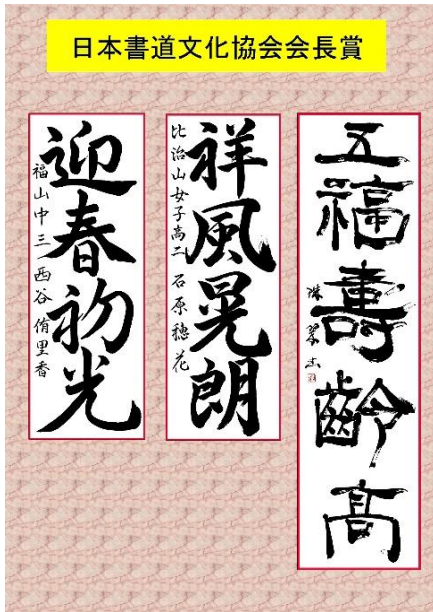 日本書道文化協会会長賞
五福壽齡高
祥風晃朗
比治山女子高二 石原穂花
迎春初光
福山中三 西谷侑里香